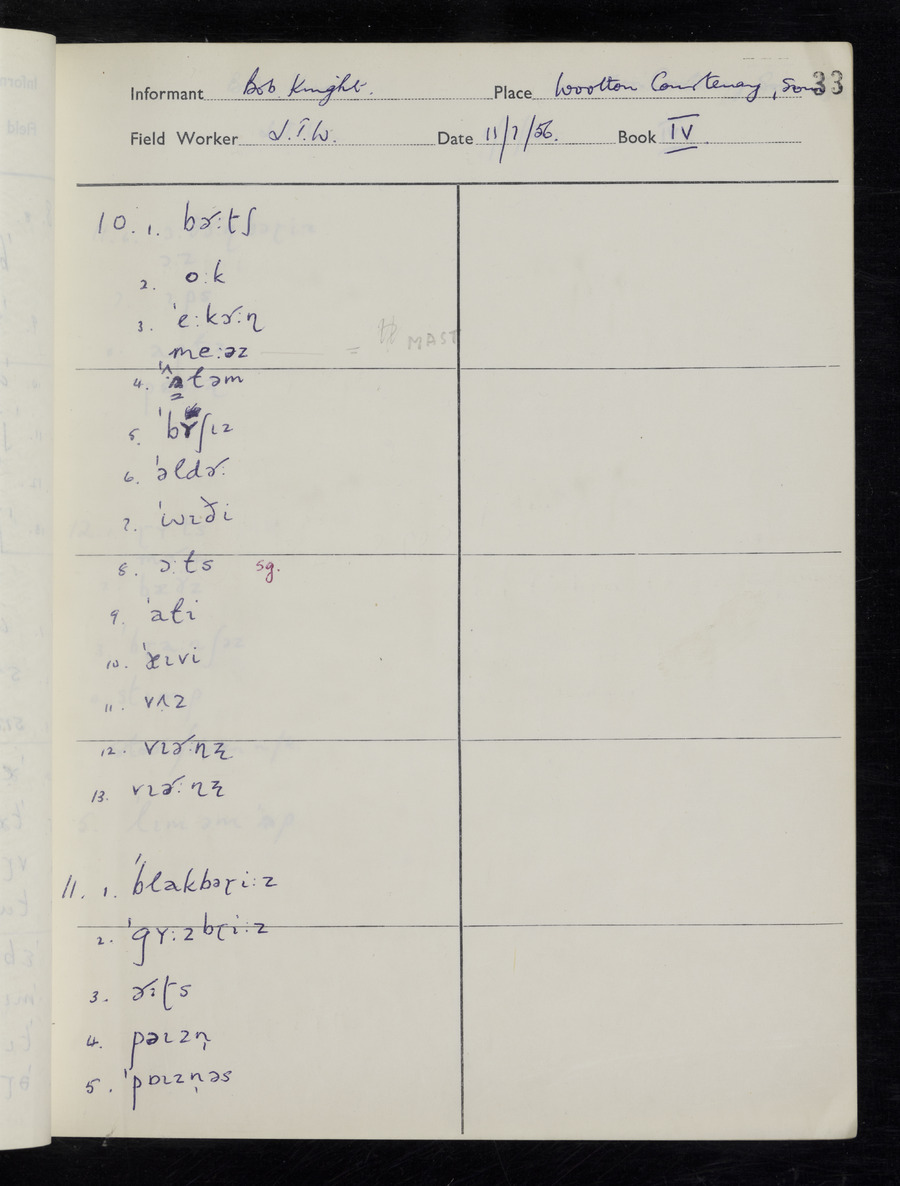 33
Informant Bob Knight. Place Wootton Courtenay, Som
Field Worker J.T.W. Date 11/7/56. Book IV
10. 1. bɚ:tʃ
2. o:k
3. ˈe:kɚ:ɳ
me:əz = MAST
4. ˈʌtəm
5. ˈbɤʃɪz
6. ˈəldɚ:
7. ˈwɪði
8. ɔ:ts sg.
9. ˈati
10. ˈæɪvi
11. vʌz
12. vɪɚ:ɳʐ
13. vɪɚ:ɳʐ
11. 1. ˈblakbəɽi:z
2. ˈgʏ:zbɽi:z
3. ɚ:ʈs
4. pəɪzn̩
5. ˈpɒɪzn̩əs